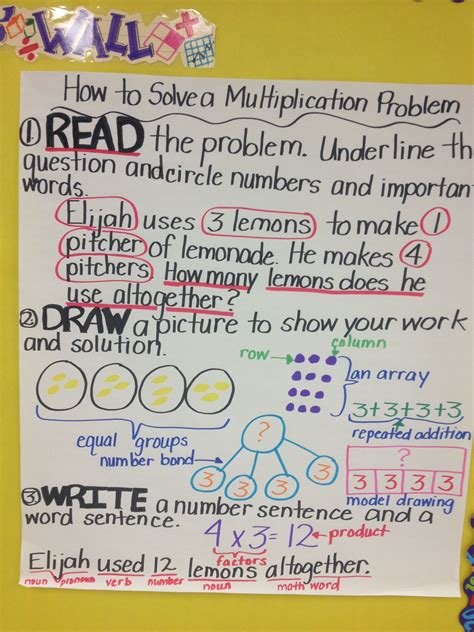 WALL
How to Solve a Multiplication Problem
① READ the problem. Underline th
question and circle numbers and importan
words.
Elijah uses 3 lemons to make 1
pitcher of lemonade. He makes 4
pitchers. How many lemons does he
use altogether?
② DRAW a picture to show your work
and solution.
row column
an array
3+3+3+3
repeated addition
equal groups
number bond
?
3 3 3 3
?
3 3 3 3
model drawing
③ WRITE a number sentence and a
word sentence.
4 x 3 = 12 product
factors
Elijah used 12 lemons altogether.
noun pronoun verb number noun math word